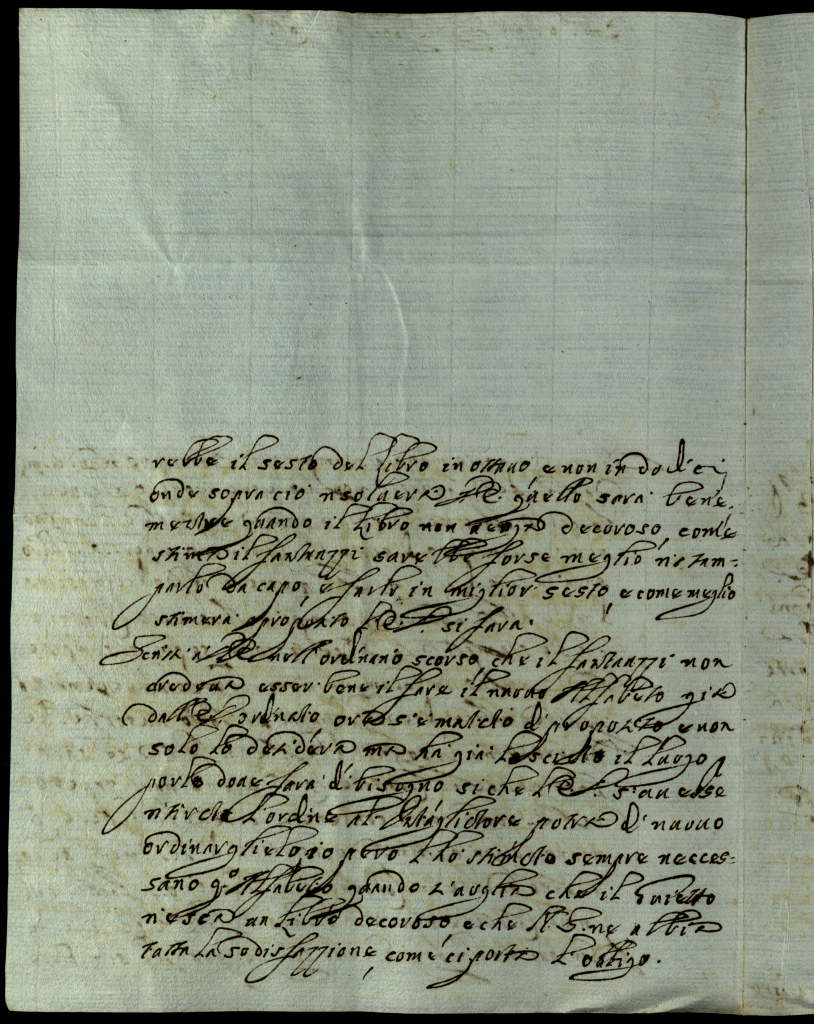 rebbe il sesto del libro in ottavo e non in dodici
onde sopra ciò risolverà quello sarà bene,
mentre quando il libro non decoroso, come
stima il fantuzzi sarebbe forse meglio ristam-
parlo da capo, e farlo in miglior sesto, e come meglio
stimerà a proposito si farà.
Scrissi nell'ordinario scorso, che il fantuzzi non
credeva esser bene il fare il nuovo Alfabeto già
dall' ordinato ora s'è mutato di proposito e non
solo lo desidera ma ha già lasciato il luogo
per le dove farà di bisogno si che s'avesse
ritirato l'ordine al Intagliatore potrà di nuovo
ordinarglielo, io però l'ho stimato sempre neces=
sario q.o Alfabeto quando che il
riesca un libro decoroso, e che ne abbia
tutta la sodisfazzione, come ci porta l'obligo.